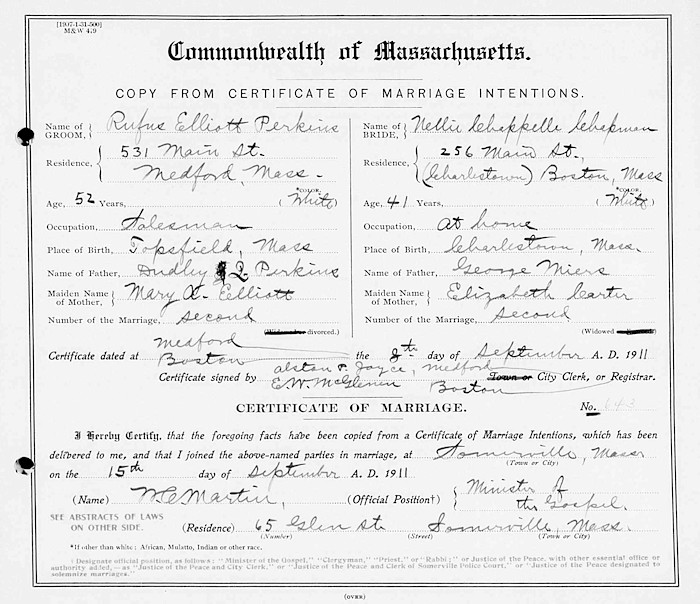 [1907-1-31-500]
M&W 4.9
Commonwealth of Massachusetts.
COPY FROM CERTIFICATE OF MARRIAGE INTENTIONS.
Name of GROOM, Rufus Elliott Perkins
Residence, 531 Main St.
Medford, Mass.
Age, 52 Years, (*COLOR. White)
Occupation, Salesman
Place of Birth, Topsfield, Mass
Name of Father, Dudley Q. Perkins
Maiden Name of Mother, Mary A. Elliott
Number of the Marriage, Second
(Widowed or divorced.)
Name of BRIDE, Nellie Chappelle Chapman
Residence, 256 Main St.,
(Charlestown) Boston, Mass
Age, 41 Years, (*COLOR. White)
Occupation, At home
Place of Birth, Charlestown, Mass.
Name of Father, George Miers
Maiden Name of Mother, Elizabeth Carter
Number of the Marriage, Second
(Widowed
Medford
Certificate dated at Boston the 8th day of September A. D. 1911
Alston P. Joyce, Medford
Certificate signed by E.W. McGlenen Boston Town or City Clerk, or Registrar.
CERTIFICATE OF MARRIAGE. No. 643
I Hereby Certify, that the foregoing facts have been copied from a Certificate of Marriage Intentions, which has been
delivered to me, and that I joined the above-named parties in marriage, at Somerville, Mass
(Town or City)
on the 15th day of September A. D. 1911
(Name) W C Martin, (Official Position†) { Minister of the Gospel.
SEE ABSTRACTS OF LAWS
ON OTHER SIDE.
(Residence) 65 Glen St. Somerville, Mass.
(Number) (Street) (Town or City)
*If other than white; African, Mulatto, Indian or other race.
† Designate official position, as follows: "Minister of the Gospel," "Clergyman," "Priest," or "Rabbi;" or Justice of the Peace, with other essential office or
authority added,—as "Justice of the Peace and City Clerk," or "Justice of the Peace and Clerk of Somerville Police Court," or "Justice of the Peace designated to
solemnize marriages."
(OVER)